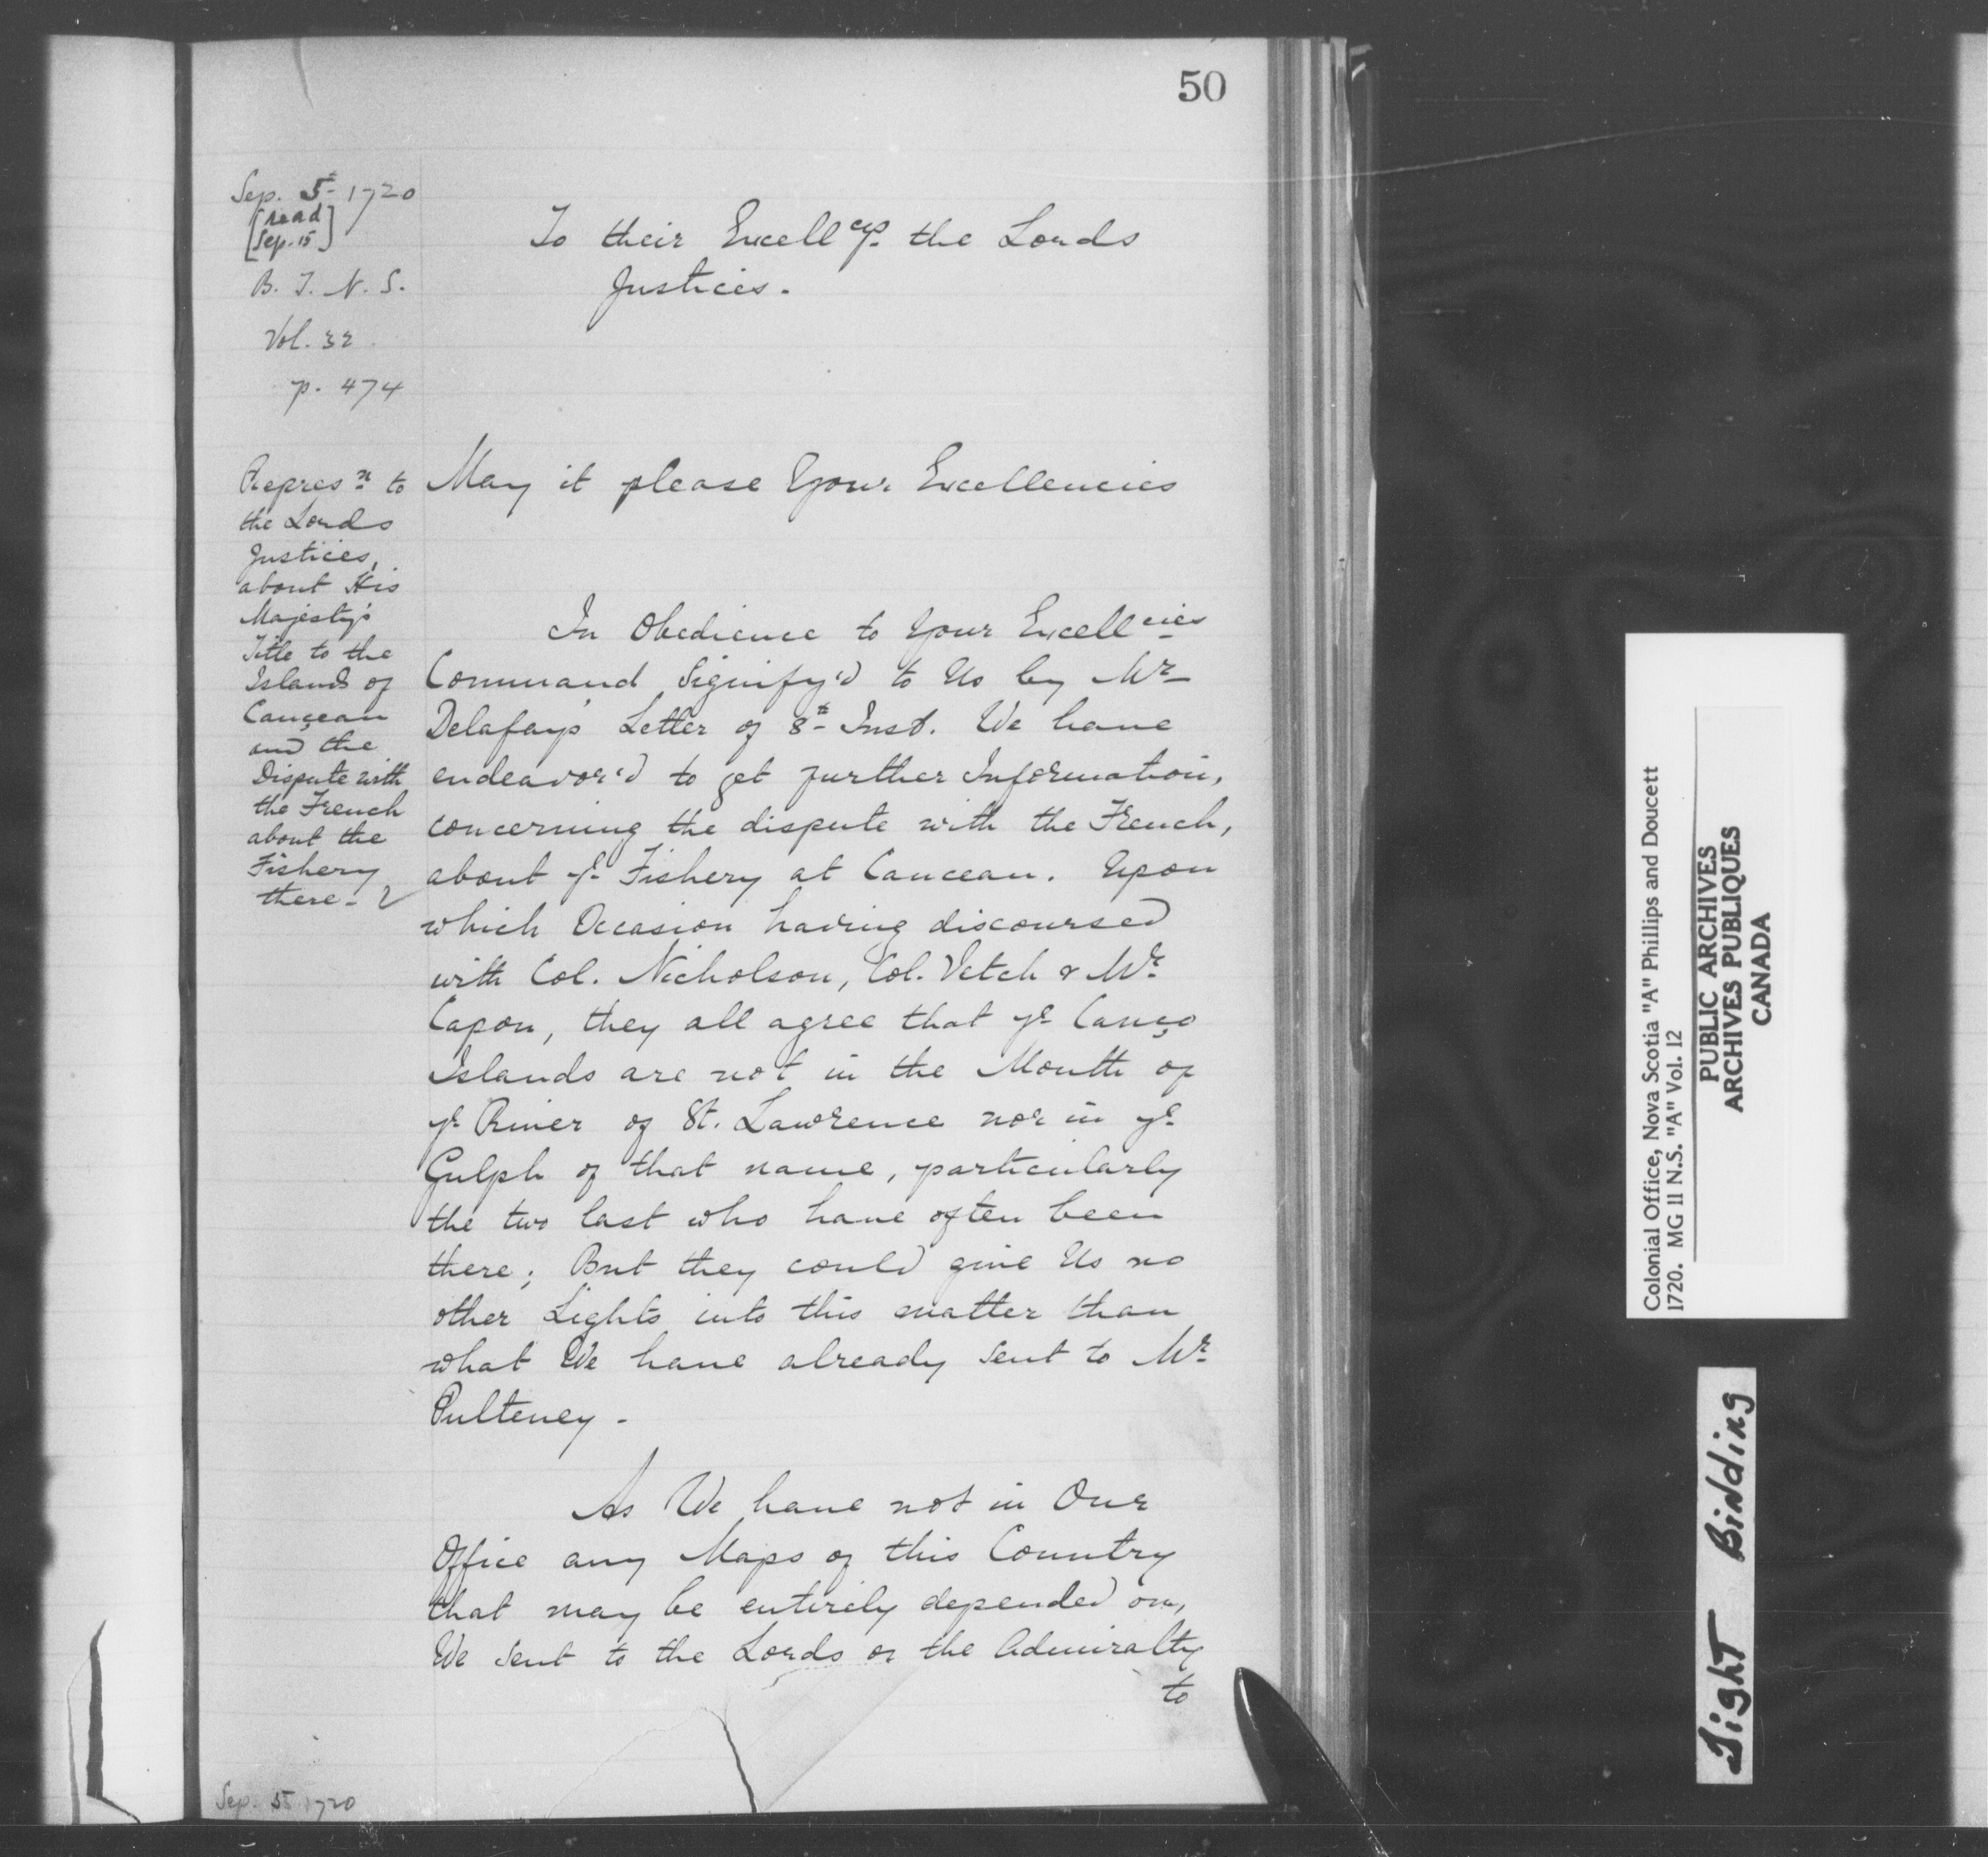 50
Sep. 5t 1720
[read
Sep. 15]
B. T. N. S.
Vol. 32
p. 474
To their Excellcys the Lords
Justices.
Represn to
the Lords
Justices,
about His
Majesty's
Title to the
Islands of
Cançeau
and the
Dispute with
the French
about the
Fishery
there -
May it please Your Excellencies
In Obedience to Your Excellcies
Command Signify'd to Us by Mr
Delafay's Letter of 8th Inst. We have
endeavor'd to get further Information,
concerning the dispute with the French,
about ye Fishery at Canceau. Upon
which Occasion having discoursed
with Col. Nicholson, Col. Vetch & Mr
Capon, they all agree that ye Canço
Islands are not in the Mouth of
ye River of St. Lawrence nor in ye
Gulph of that name, particularly
the two last who have often been
there; But they could give Us no
other Lights into this matter than
what We have already sent to Mr
Pulteney -
As We have not in Our
Office any Maps of this Country
that may be entirely depended on,
We sent to the Lords of the Admiralty
to
Sep. 5t 1720
Colonial Office, Nova Scotia "A" Phillips and Doucett
1720. MG 11 N.S. "A" Vol. 12
PUBLIC ARCHIVES
ARCHIVES PUBLIQUES
CANADA
Tight Binding